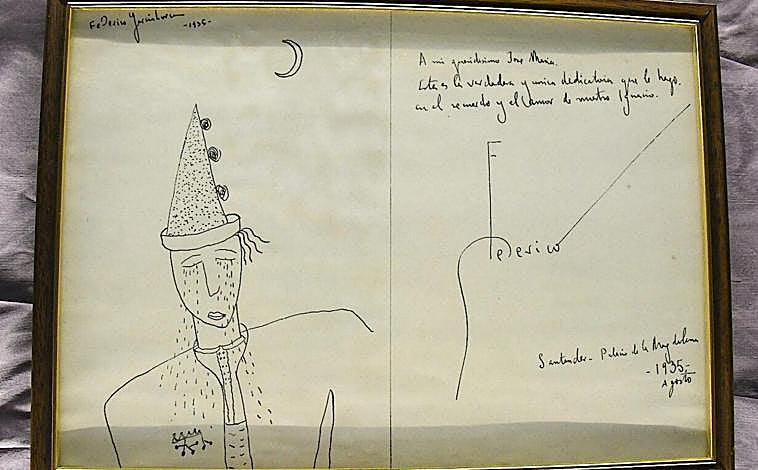 Federico García Lorca
-1935-
A mi queridísimo Jose María.
Esta es la verdadera y unica dedicatoria que le hago,
en el recuerdo y el amor de nuestro Ignacio.
Federico
Santander - Palacio de la Magdalena
-1935-
Agosto